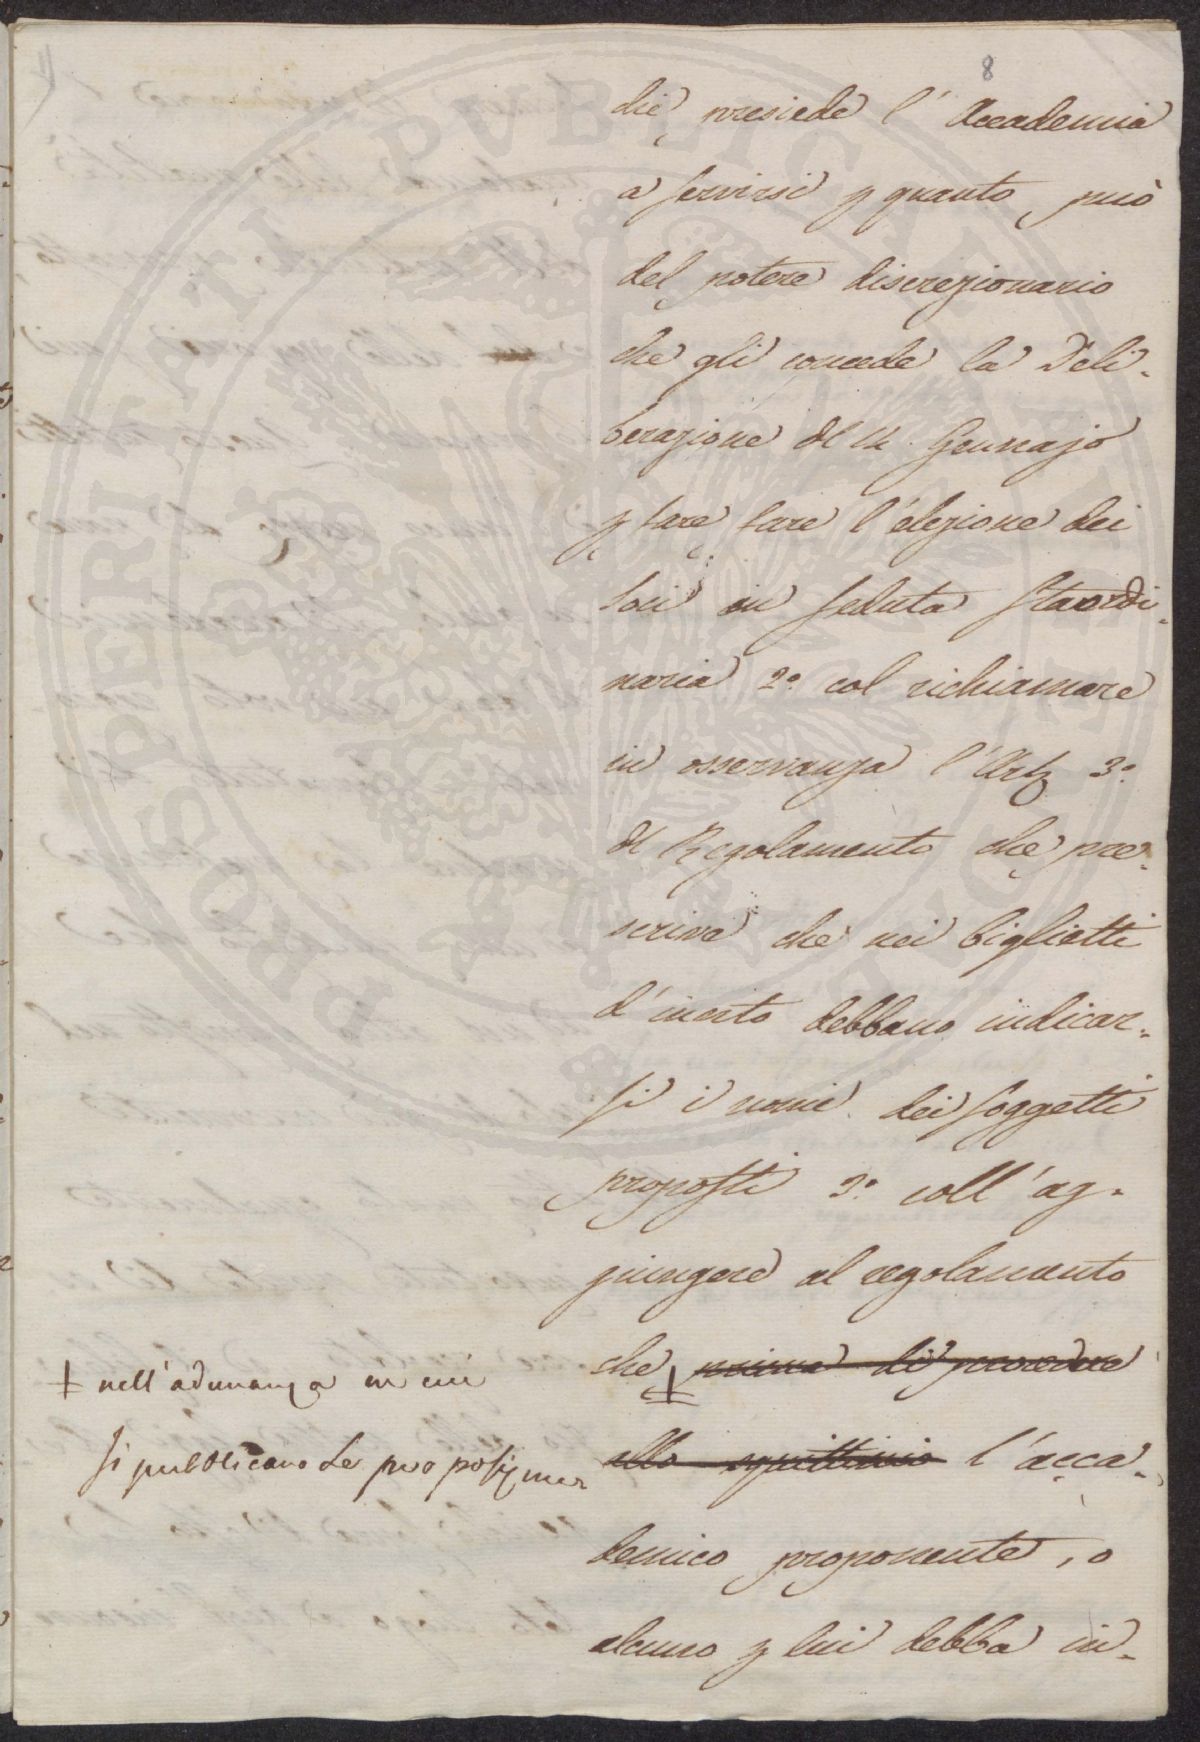 8
chi presiede l'Accademia
a servirsi p quanto può
del potere discrezionario
che gli concede la Deli-
berazione del Gennajo
p fare fare l'elezione dei
soci in seduta staordi-
naria 2.° col richiamare
in osservanza l'Art. 3.°
del Regolamento che pre-
scrive che nei biglietti
d'invito debbano indicar-
si i nomi dei soggetti
proposti 3.° coll'ag-
giungere al regolamento
che ‡ prima di procedere
allo squittinio l'acca-
demico proponente, o
alcuno p lui debba in-
‡ nell'adunanza in cui
si pubblicano le proposizioni
PROSPERITATI PVBLICAE AVGENDAE